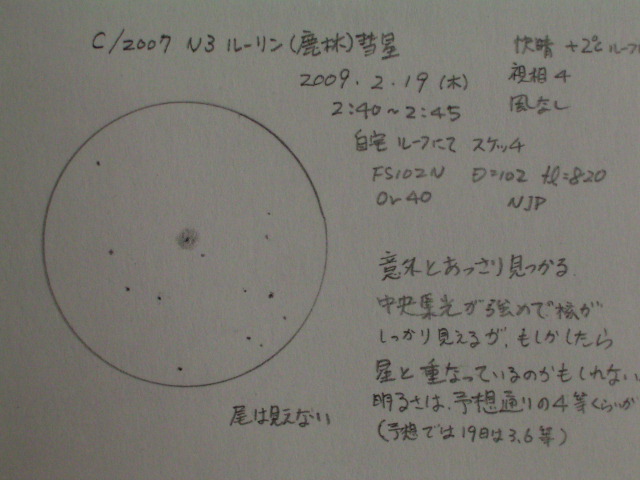 C/2007 N3 ルーリン(鹿林)彗星
2009.2.19 (木)
2:40～2:45
自宅 ルーフにて スケッチ
FS102N D=102 fl=820
Or40 NJP
快晴 +2℃ ルーフ
視相 4
風なし
意外とあっさり見つかる.
中央集光が強めで核が
しっかり見えるが、もしかしたら
星と重なっているのかもしれない
明るさは、予想通りの4等くらいか
(予想では19日は3.6等)
尾は見えない